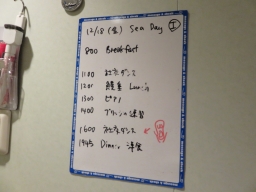 12/18 (金) Sea Day ①
800 Breakfast
1100 社交ダンス
1200 Lunch
1300 ピアノ
1400 の練習
1600 ダンス
1945 Dinner 洋食